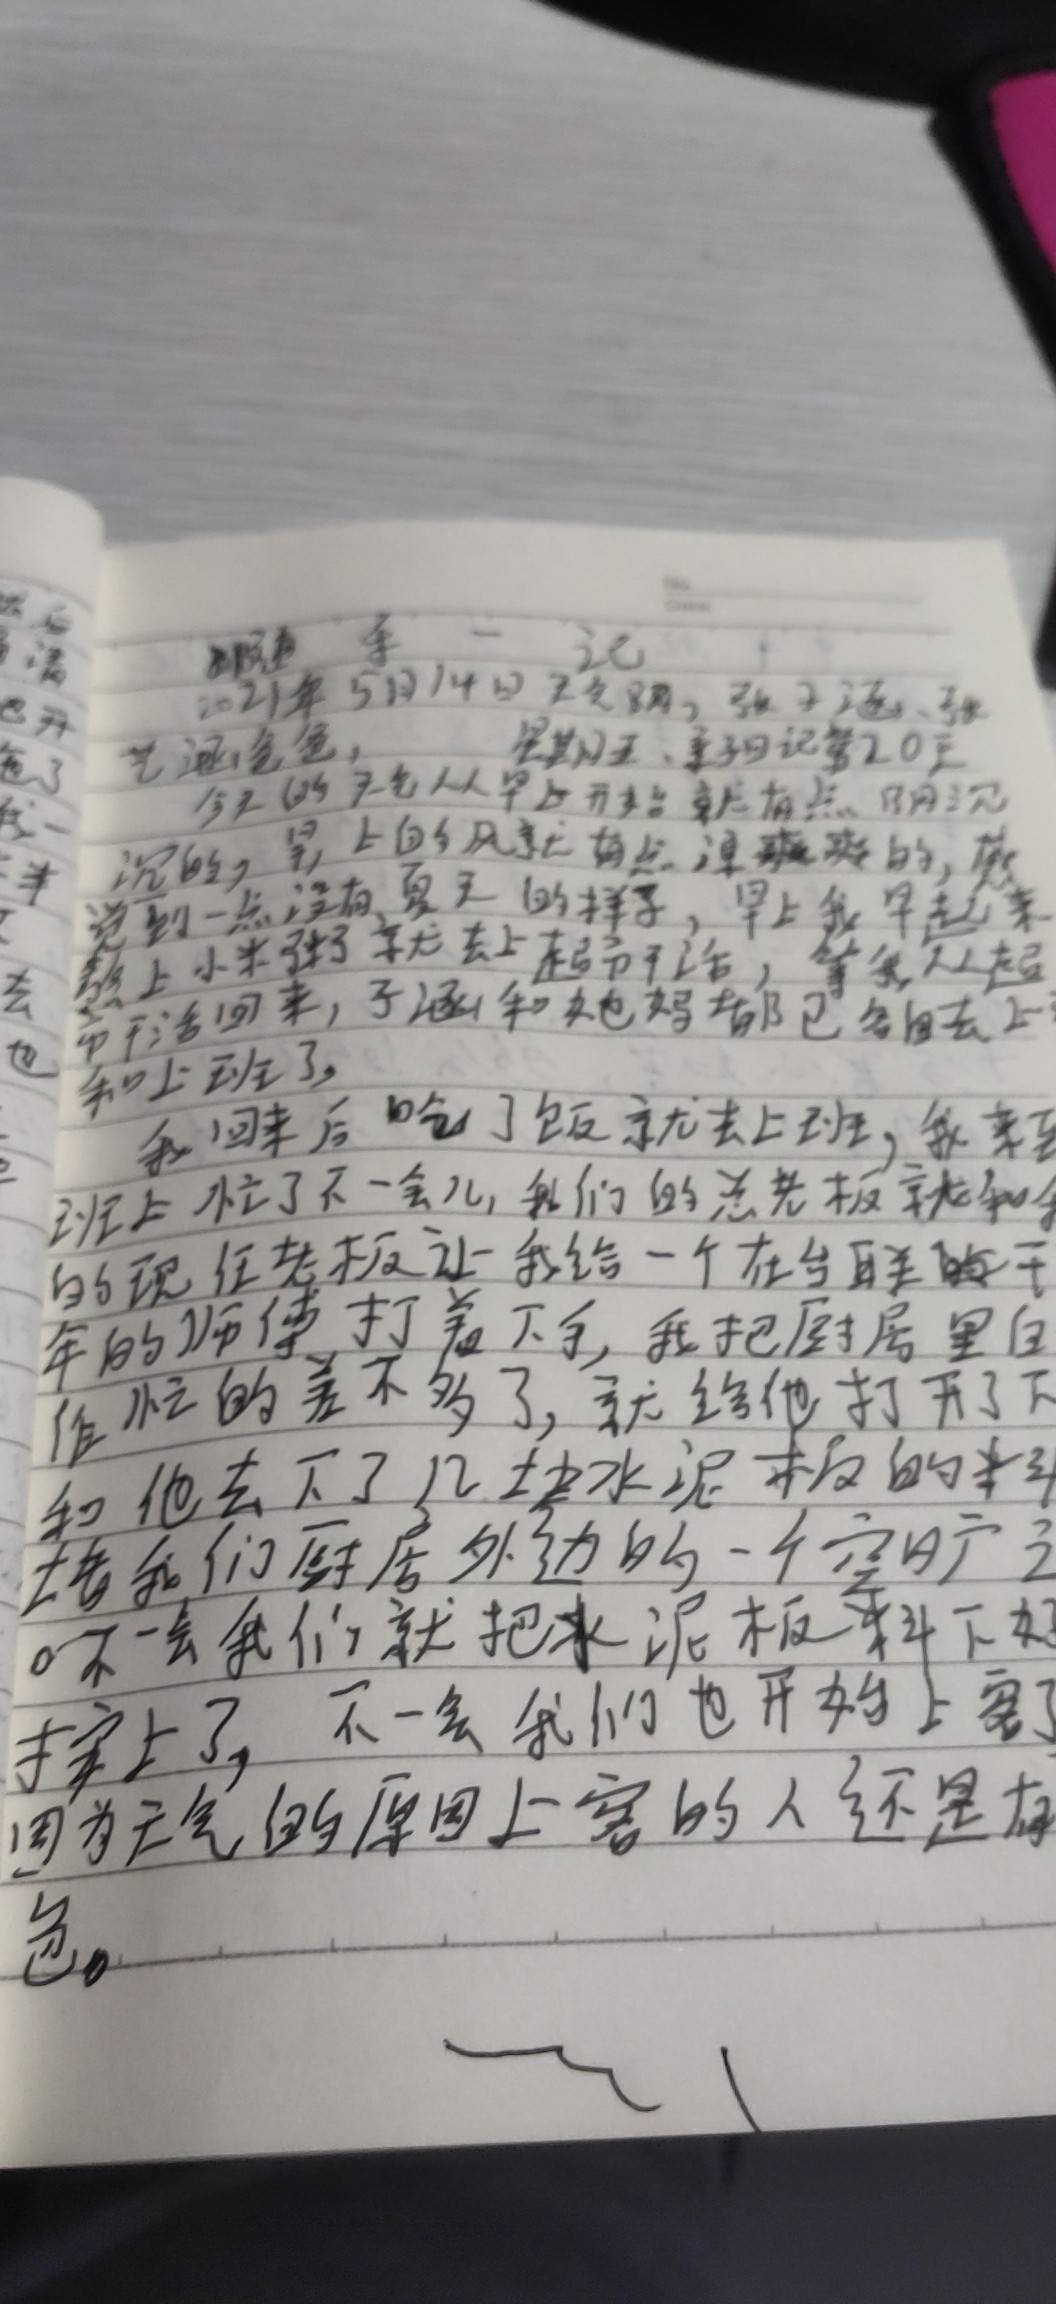 随 手 一 记
2021年5月14日 天气阴, 张子涵、张
艺涵爸爸, 星期五、亲子日记第20天
今天的天气从早上开始就有点阴沉
沉的, 早上的风就有点凉爽爽的, 感
觉到一点没有夏天的样子, 早上我早起来
熬上小米粥就去上超市干活, 等我从超
市干活回来, 子涵和她妈都已各自去上
和上班了,
我回来后吃了饭就去上班, 我来到
班上忙了不一会儿, 我们的总老板就和
的现任老板让我给一个在台联干
年的师傅打差下手, 我把厨居里
作忙的差不多了, 就给他打开了下
和他去下了几块水泥板的料
我们厨居外边的一个空旷之
。不一会我们就把水泥板料下好
上了, 不一会我们也开始上客了
因为天气的原因上客的人还是有
色。